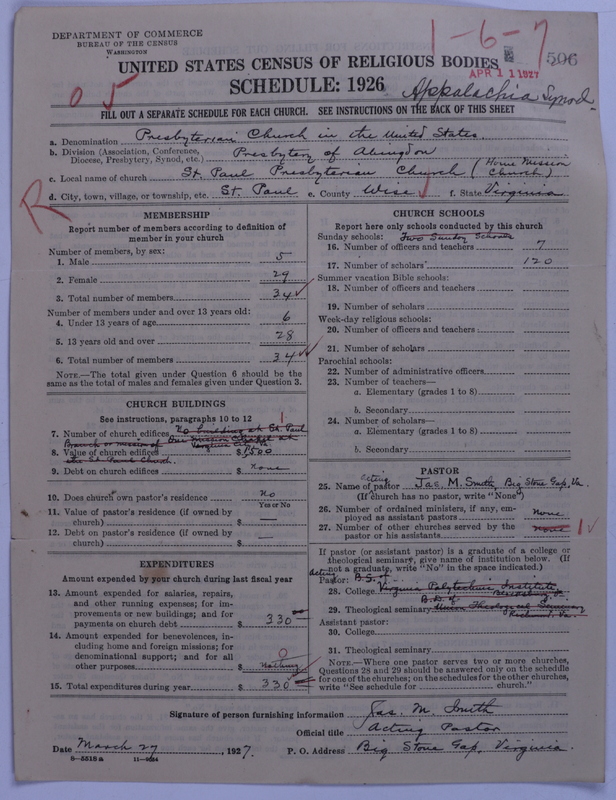 DEPARTMENT OF COMMERCE
BUREAU OF THE CENSUS
WASHINGTON
1-6-7
506
UNITED STATES CENSUS OF RELIGIOUS BODIES
APR 11 1927
SCHEDULE: 1926
Appalachia Synod
0 5
FILL OUT A SEPARATE SCHEDULE FOR EACH CHURCH. SEE INSTRUCTIONS ON THE BACK OF THIS SHEET
a. Denomination Presbyterian Church in the United States
b. Division (Association, Conference, Diocese, Presbytery, Synod, etc.) Presbytery of Abingdon
c. Local name of church St. Paul Presbyterian Church (Home Mission Church)
R
d. City, town, village, or township, etc. St. Paul e. County Wise f. State Virginia
MEMBERSHIP
Report number of members according to definition of
member in your church
Number of members, by sex:
1. Male 5
2. Female 29
3. Total number of members 34
Number of members under and over 13 years old:
4. Under 13 years of age 6
5. 13 years old and over 28
6. Total number of members 34
NOTE.—The total given under Question 6 should be the
same as the total of males and females given under Question 3.
CHURCH BUILDINGS
See instructions, paragraphs 10 to 12
7. Number of church edifices No building at St. Paul 1
Branch or mission of One mission Chapel at Virginia
8. Value of church edifices $1,500
the St. Paul Church.
9. Debt on church edifices $ none
10. Does church own pastor's residence No
Yes or No
11. Value of pastor's residence (if owned by
church) $ —
12. Debt on pastor's residence (if owned by
church) $ —
EXPENDITURES
Amount expended by your church during last fiscal year
13. Amount expended for salaries, repairs,
and other running expenses; for im-
provements or new buildings; and for
payments on church debt $ 330
14. Amount expended for benevolences, in-
cluding home and foreign missions; for
denominational support; and for all
other purposes $ nothing 0
15. Total expenditures during year $ 330
CHURCH SCHOOLS
Report here only schools conducted by this church
Sunday schools: Two Sunday Schools
16. Number of officers and teachers 7
17. Number of scholars 120
Summer vacation Bible schools:
18. Number of officers and teachers
19. Number of scholars
Week-day religious schools:
20. Number of officers and teachers
21. Number of scholars
Parochial schools:
22. Number of administrative officers
23. Number of teachers—
a. Elementary (grades 1 to 8)
b. Secondary
24. Number of scholars—
a. Elementary (grades 1 to 8)
b. Secondary
PASTOR
25. Name of acting pastor Jas. M. Smith, Big Stone Gap, Va.
(If church has no pastor, write "None")
26. Number of ordained ministers, if any, em-
ployed as assistant pastors none
27. Number of other churches served by the
pastor or his assistants none 1
If pastor (or assistant pastor) is a graduate of a college or
theological seminary, give name of institution below. (If
not a graduate, write "No" in the space indicated.)
Acting Pastor: B.S. of
28. College Virginia Polytechnic Institute
B.D. of
29. Theological seminary Union Theological Seminary
Richmond, Va.
Assistant pastor:
30. College
31. Theological seminary
NOTE.—Where one pastor serves two or more churches,
Questions 28 and 29 should be answered only on the schedule
for one of the churches; on the schedules for the other churches,
write "See schedule for church."
Signature of person furnishing information Jas. M. Smith
Official title Acting Pastor
Date March 27, 1927. P. O. Address Big Stone Gap, Virginia.
8—5518a 11—9034